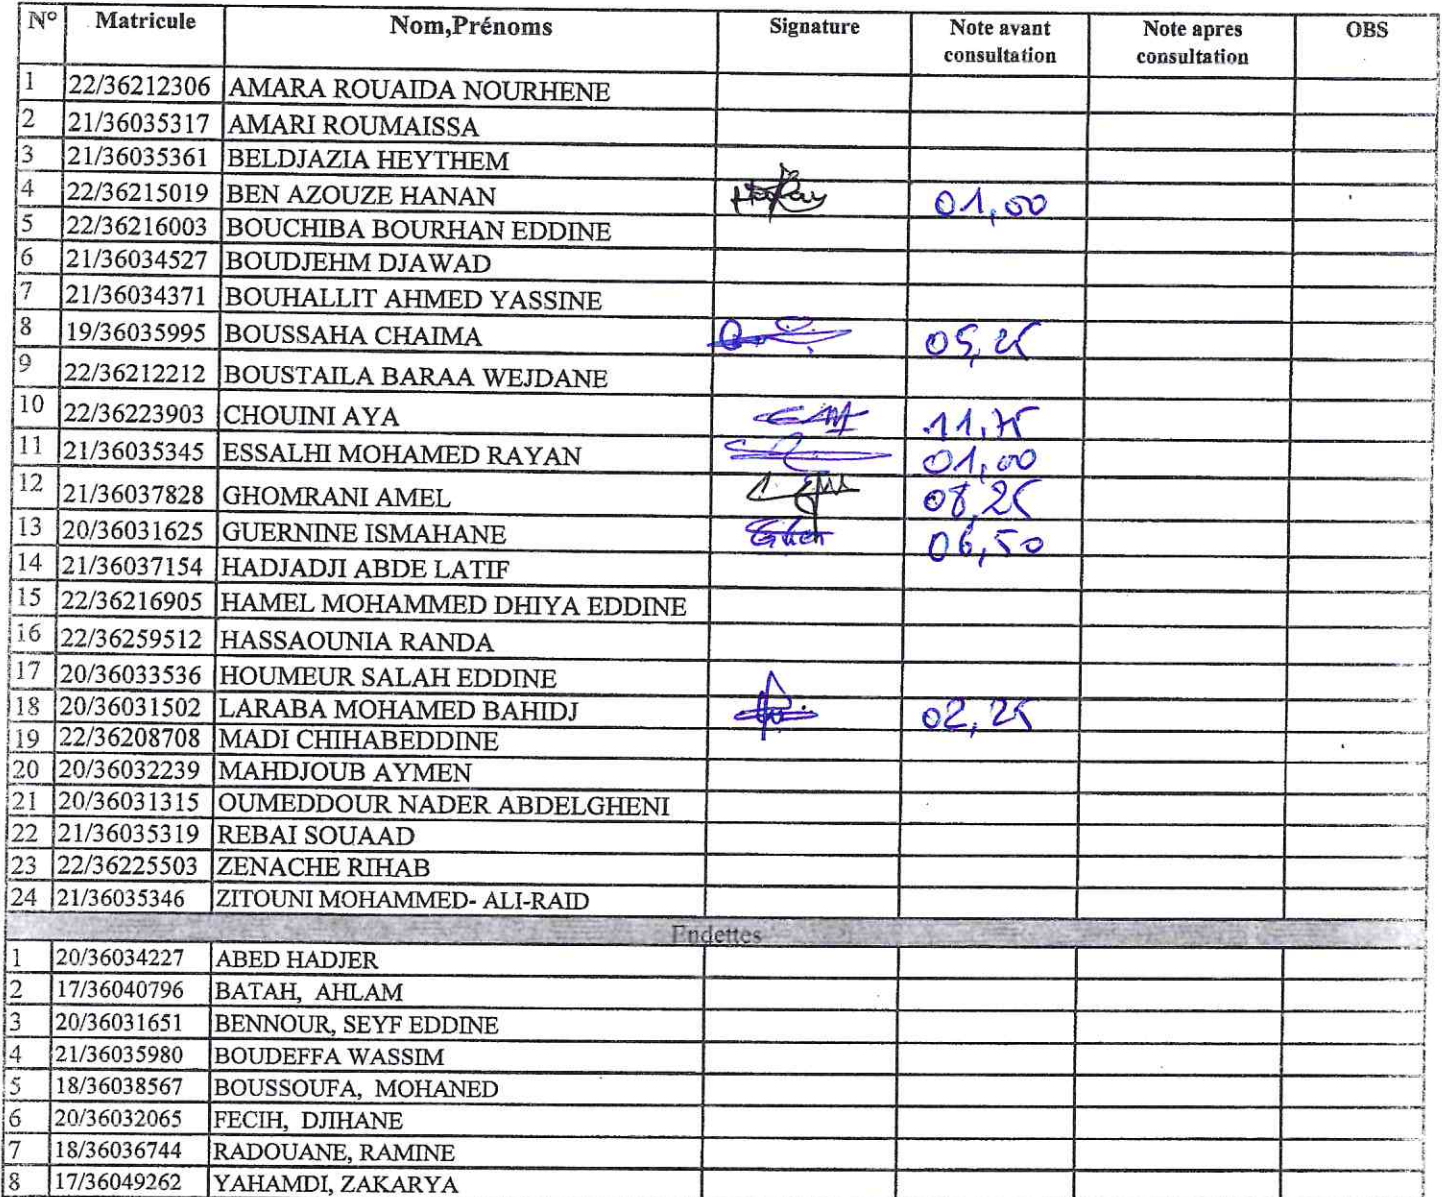 N° Matricule Nom,Prénoms Signature Note avant consultation Note apres consultation OBS
1 22/36212306 AMARA ROUAIDA NOURHENE
2 21/36035317 AMARI ROUMAISSA
3 21/36035361 BELDJAZIA HEYTHEM
4 22/36215019 BEN AZOUZE HANAN 01,00
5 22/36216003 BOUCHIBA BOURHAN EDDINE
6 21/36034527 BOUDJEHM DJAWAD
7 21/36034371 BOUHALLIT AHMED YASSINE
8 19/36035995 BOUSSAHA CHAIMA 05,25
9 22/36212212 BOUSTAILA BARAA WEJDANE
10 22/36223903 CHOUINI AYA 11,75
11 21/36035345 ESSALHI MOHAMED RAYAN 01,00
12 21/36037828 GHOMRANI AMEL 08,25
13 20/36031625 GUERNINE ISMAHANE 06,50
14 21/36037154 HADJADJI ABDE LATIF
15 22/36216905 HAMEL MOHAMMED DHIYA EDDINE
16 22/36259512 HASSAOUNIA RANDA
17 20/36033536 HOUMEUR SALAH EDDINE
18 20/36031502 LARABA MOHAMED BAHIDJ 02,25
19 22/36208708 MADI CHIHABEDDINE
20 20/36032239 MAHDJOUB AYMEN
21 20/36031315 OUMEDDOUR NADER ABDELGHENI
22 21/36035319 REBAI SOUAAD
23 22/36225503 ZENACHE RIHAB
24 21/36035346 ZITOUNI MOHAMMED- ALI-RAID
Endettes
1 20/36034227 ABED HADJER
2 17/36040796 BATAH, AHLAM
3 20/36031651 BENNOUR, SEYF EDDINE
4 21/36035980 BOUDEFFA WASSIM
5 18/36038567 BOUSSOUFA, MOHANED
6 20/36032065 FECIH, DJIHANE
7 18/36036744 RADOUANE, RAMINE
8 17/36049262 YAHAMDI, ZAKARYA